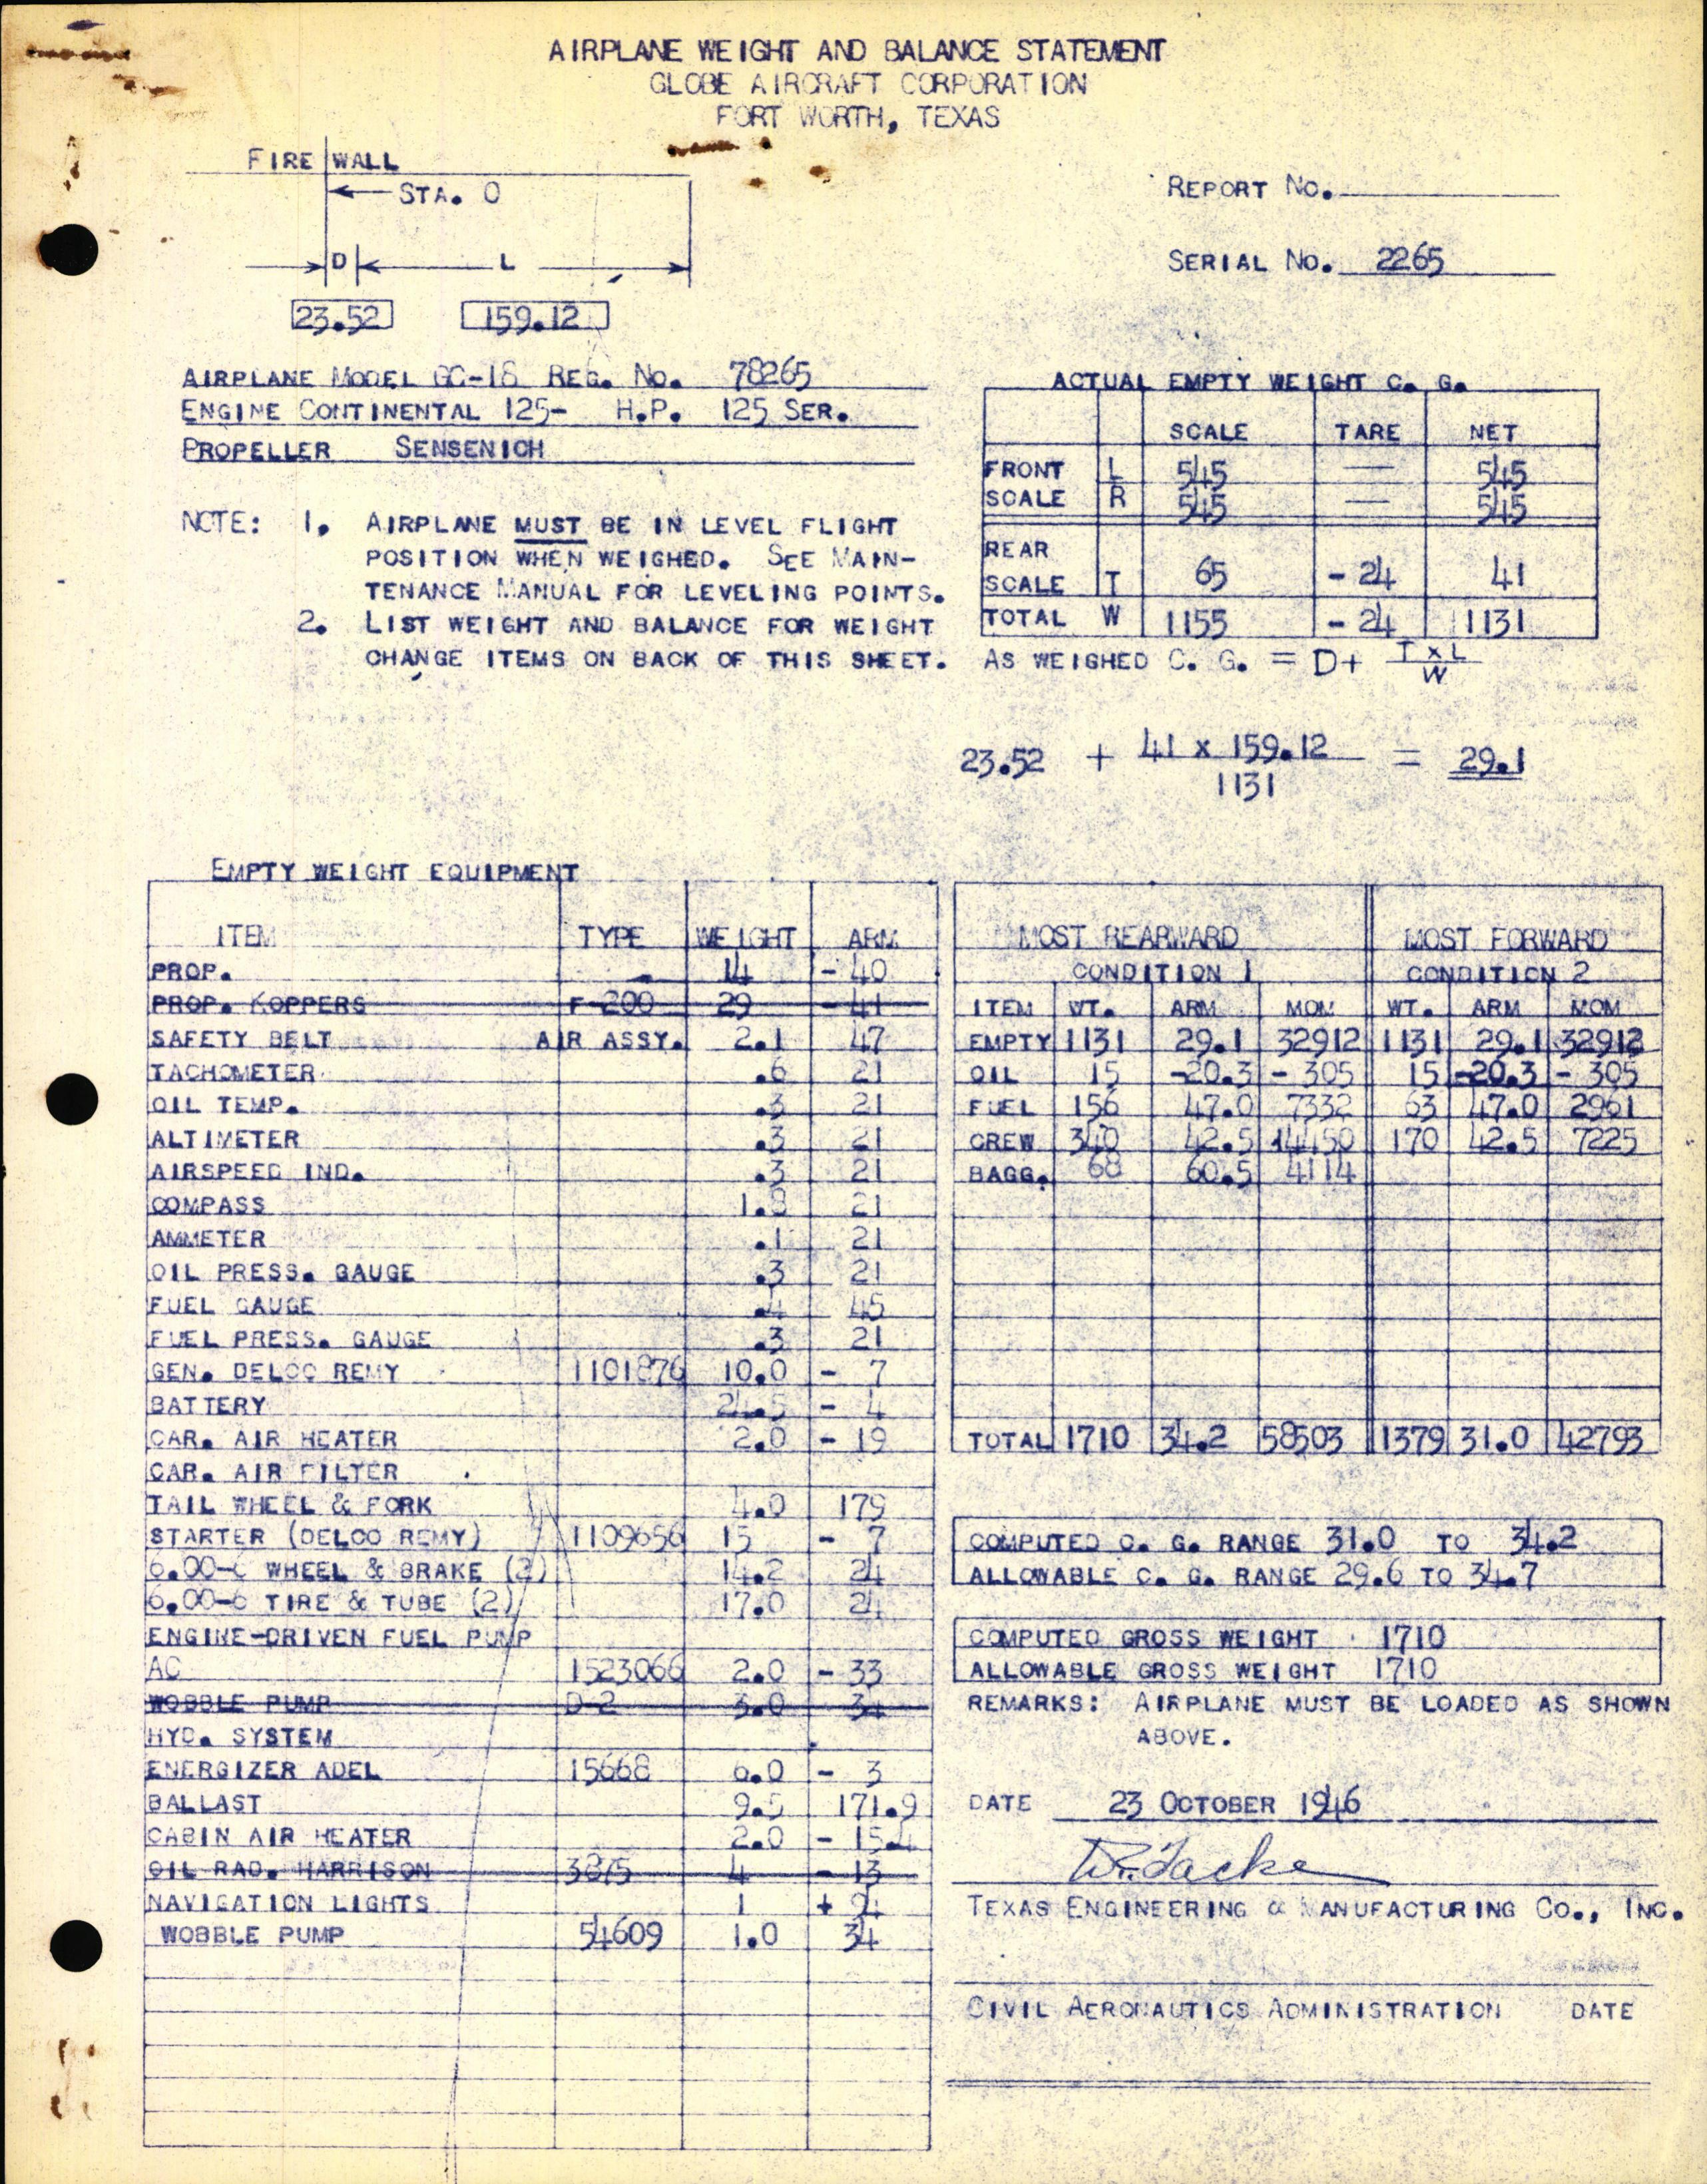 AIRPLANE WEIGHT AND BALANCE STATEMENT
GLOBE AIRCRAFT CORPORATION
FORT WORTH, TEXAS
FIRE WALL
STA. 0
D L
23.52 159.12
REPORT NO.
SERIAL NO. 2265
AIRPLANE MODEL GC-1B REG. NO. 78265
ENGINE CONTINENTAL 125- H.P. 125 SER.
PROPELLER SENSENICH
NOTE: 1. AIRPLANE MUST BE IN LEVEL FLIGHT
POSITION WHEN WEIGHED. SEE MAIN-
TENANCE MANUAL FOR LEVELING POINTS.
2. LIST WEIGHT AND BALANCE FOR WEIGHT
CHANGE ITEMS ON BACK OF THIS SHEET.
ACTUAL EMPTY WEIGHT C. G.
SCALE TARE NET
FRONT L 545 — 545
SCALE R 545 — 545
REAR
SCALE T 65 - 24 41
TOTAL W 1155 - 24 1131
AS WEIGHED C. G. = D+ T x L
W
23.52 + 41 x 159.12 = 29.1
1131
EMPTY WEIGHT EQUIPMENT
ITEM TYPE WEIGHT ARM
PROP. 14 - 40
PROP. KOPPERS F-200 29 - 41
SAFETY BELT AIR ASSY. 2.1 47
TACHOMETER .6 21
OIL TEMP. .3 21
ALTIMETER .3 21
AIRSPEED IND. .3 21
COMPASS 1.8 21
AMMETER .1 21
OIL PRESS. GAUGE .3 21
FUEL GAUGE .4 45
FUEL PRESS. GAUGE .3 21
GEN. DELCO REMY 1101876 10.0 - 7
BATTERY 24.5 - 4
CAR. AIR HEATER 2.0 - 19
CAR. AIR FILTER
TAIL WHEEL & FORK 4.0 179
STARTER (DELCO REMY) 1109656 15 - 7
6.00-6 WHEEL & BRAKE (2) 14.2 24
6.00-6 TIRE & TUBE (2) 17.0 24
ENGINE-DRIVEN FUEL PUMP
AC 1523066 2.0 - 33
WOBBLE PUMP D-2 3.0 34
HYD. SYSTEM
ENERGIZER ADEL 15668 6.0 - 3
BALLAST 9.5 171.9
CABIN AIR HEATER 2.0 - 15.4
OIL RAD. HARRISON 3875 4 - 13
NAVIGATION LIGHTS 1 +
WOBBLE PUMP 54609 1.0 34
MOST REARWARD MOST FORWARD
CONDITION 1 CONDITION 2
ITEM WT. ARM MOM WT. ARM MOM
EMPTY 1131 29.1 32912 1131 29.1 32912
OIL 15 -20.3 - 305 15 -20.3 - 305
FUEL 156 47.0 7332 63 47.0 2961
CREW 340 42.5 14450 170 42.5 7225
BAGG. 68 60.5 4114
TOTAL 1710 34.2 58503 1379 31.0 42793
COMPUTED C. G. RANGE 31.0 TO 34.2
ALLOWABLE C. G. RANGE 29.6 TO 34.7
COMPUTED GROSS WEIGHT 1710
ALLOWABLE GROSS WEIGHT 1710
REMARKS: AIRPLANE MUST BE LOADED AS SHOWN
ABOVE.
DATE 23 OCTOBER 1946
TEXAS ENGINEERING & MANUFACTURING CO., INC.
CIVIL AERONAUTICS ADMINISTRATION DATE